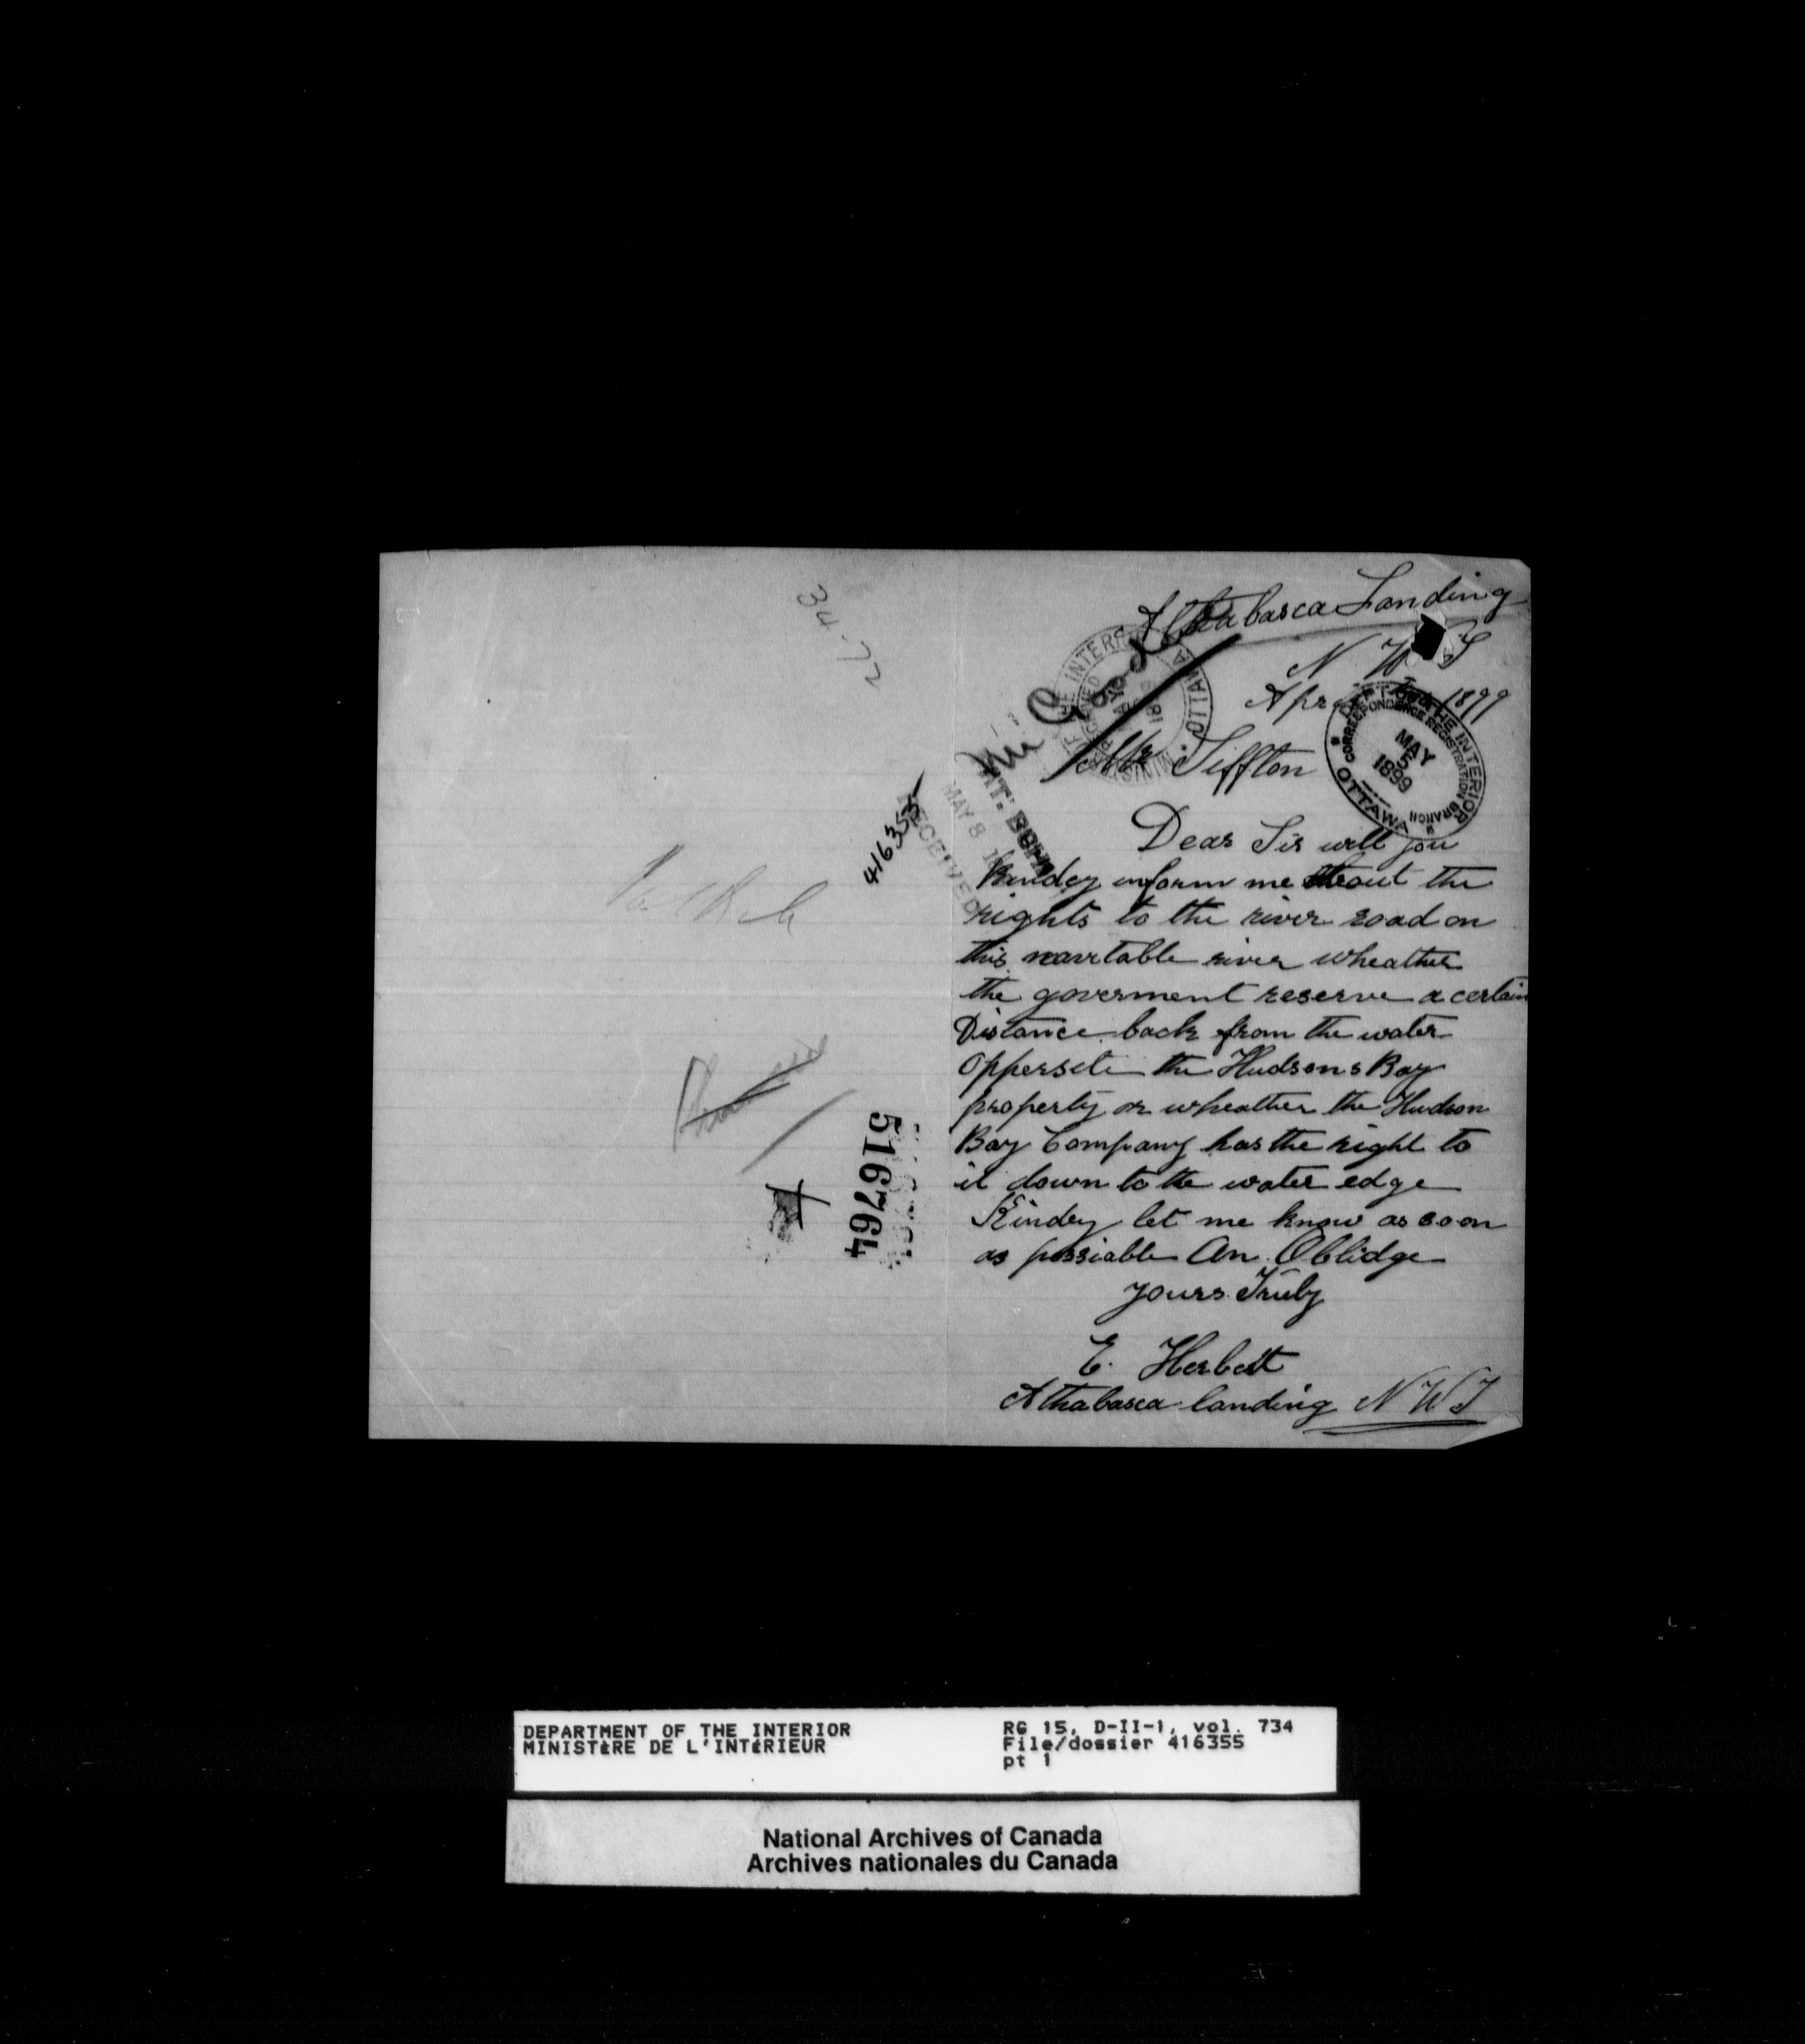 Athabasca Landing
N W T
1899
Mr Siffton
Dear Sir will you
Kindey inform me about the
rights to the river road on
this navitable river wheather
the goverment reserve a certain
Distance back from the water
Oppersite the Hudsons Bay
property or wheather the Hudson
Bay Company has the right to
it down to the water edge
Kindey let me know as soon
as possiable An Oblidge
yours Truly
E. Herbert
Athabasca landing N W T
416355
RECEIVED
MAY 8
516764
DEPT OF THE INTERIOR
CORRESPONDENCE REGISTRATION BRANCH
MAY
5
1899
OTTAWA
DEPARTMENT OF THE INTERIOR
MINISTÈRE DE L'INTÉRIEUR
RG 15, D-II-1, vol. 734
File/dossier 416355
pt 1
National Archives of Canada
Archives nationales du Canada